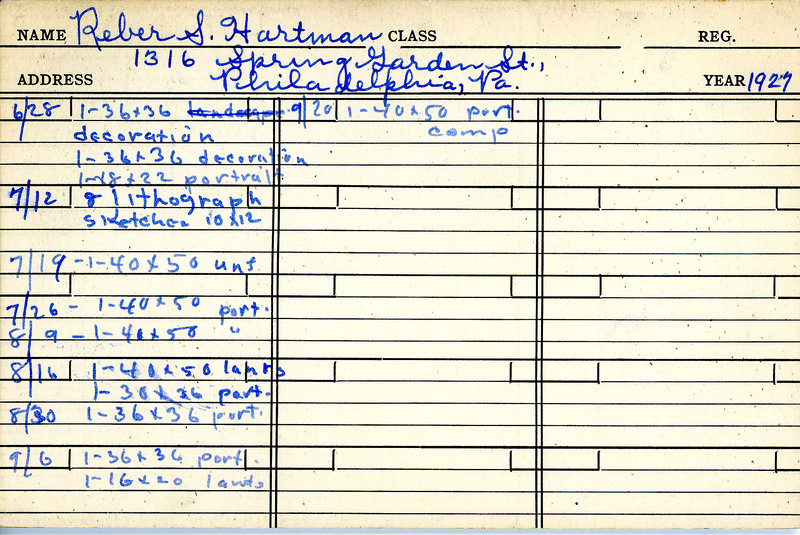 NAME Reber S. Hartman CLASS REG.
1316 Spring Garden St.,
ADDRESS Philadelphia, Pa. YEAR 1927
6/28 1-36x36 landscape 9/20 1-40x50 port.
decoration comp
1-36x36 decoration
1-18x22 portrait
7/12 8 lithograph
sketches 10x12
7/19 -1-40x50 unf
7/26 - 1-40x50 port.
8/9 - 1-40x50 "
8/16 1-40x50 lands
1-30x36 port.
8/30 1-36x36 port.
9/6 1-36x36 port.
1-16x20 lands